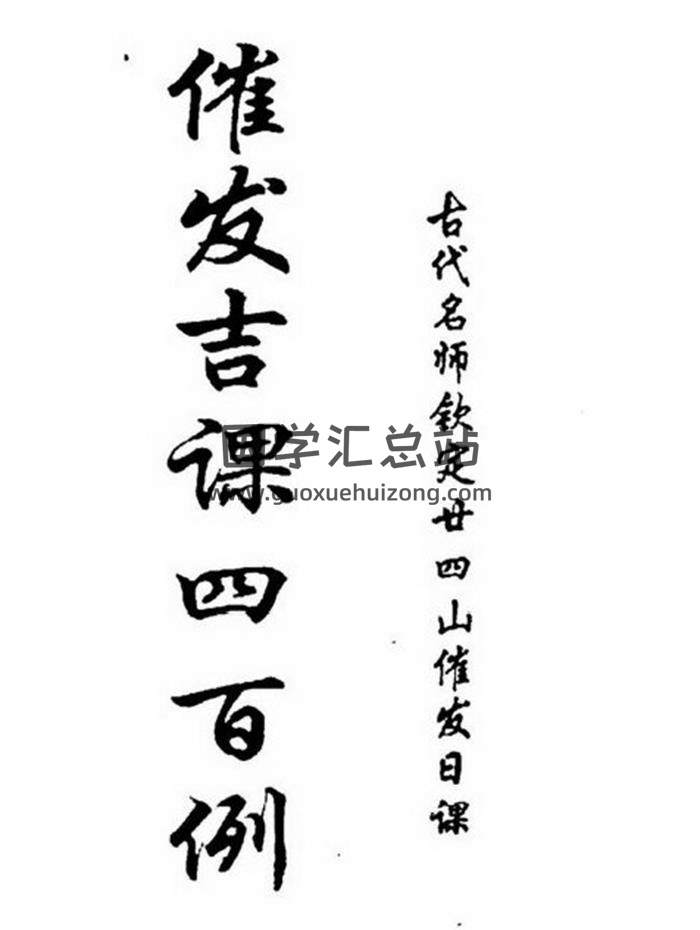 古代名师钦定廿四山催发日课
催发吉课四百例
国学汇总站
www.guoxuehuizong.com